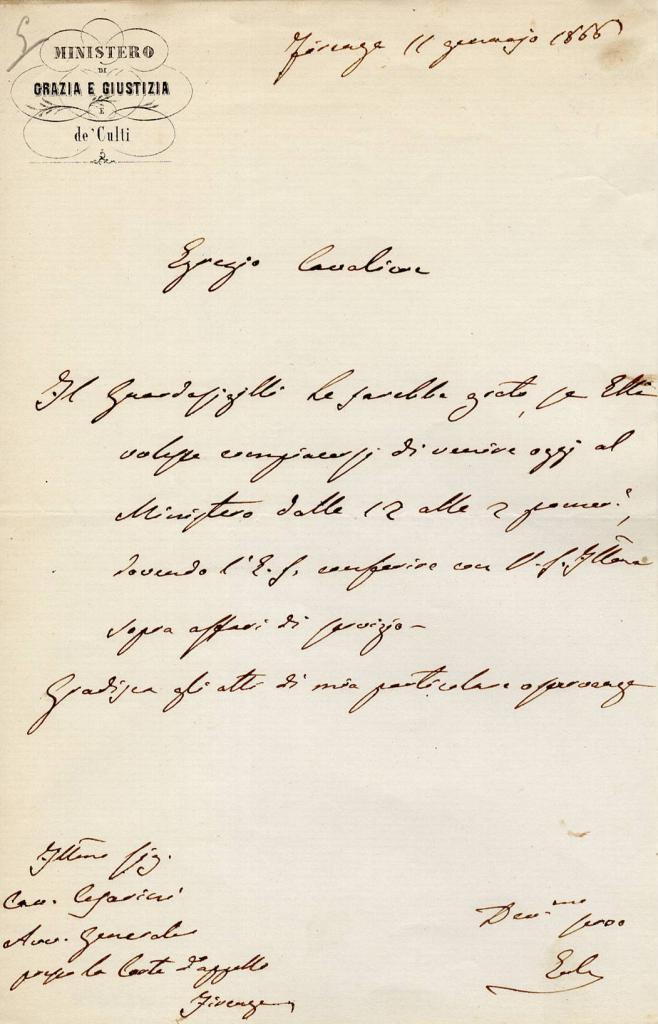 MINISTERO
DI
GRAZIA E GIUSTIZIA
E
de' Culti
Firenze 11 gennajo 1866
Egregio Cavaliere
Il Guardasigilli Le sarebbe grato, se Ella
volesse compiacersi di venire oggi al
Ministero dalle 12 alle 2 pomer.e,
dovendo l'E. S. conferire con V. S. Illma
sopra affari di servizio –
Gradisca gli atti di mia particolare osservanza
Illmo Sig.
Cav. Cesarini
Avv. Generale
presso la Corte d'appello
Firenze
Dev.mo servo